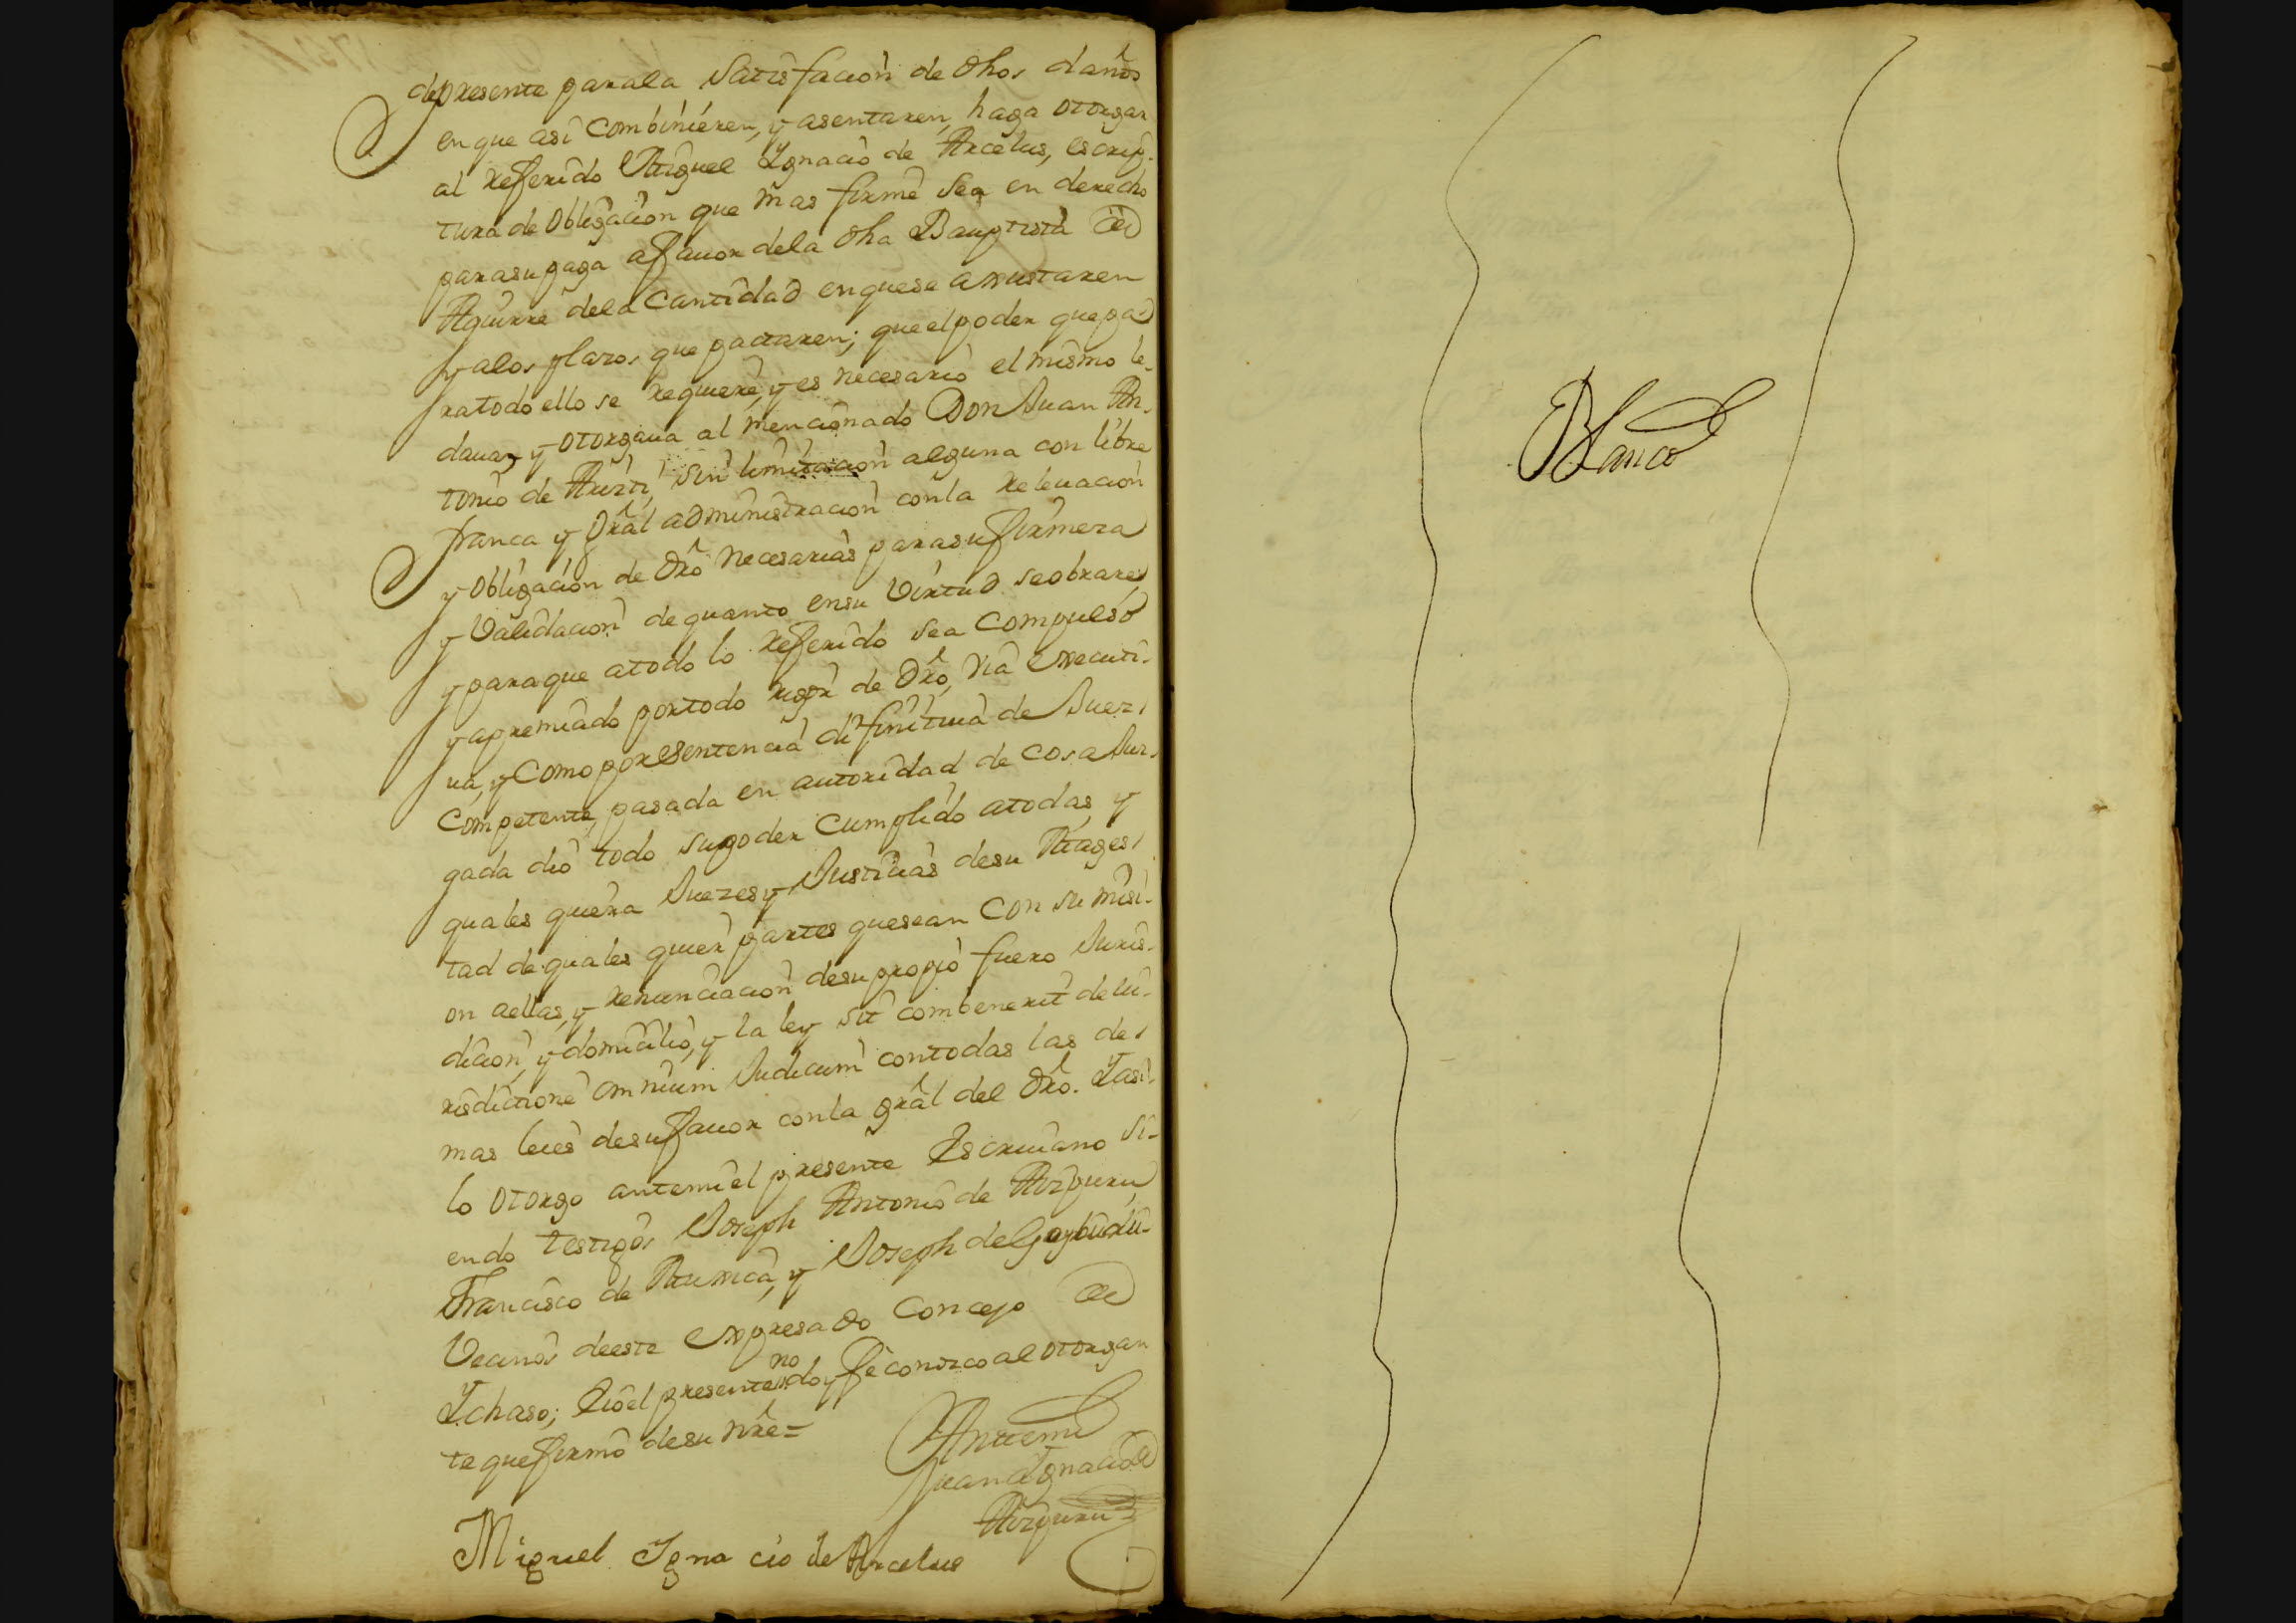 depresente parala Satisfacion de dhos daños
en que asi Combinieren, y asentaren, haga otorgar
al referido Miguel Ignacio de Arcelus, escrip-
tura de Obligacion que mas firme Sea en derecho
parasupaga afauor dela dha Bauptista de
Aguirre dela Cantidad enquese axustaren
y alos plazos que pactaren; queelpoder quepa
ratodo ello se requiere, y es necesario el mismo le
daua, y otorgaua al mencionado Don Juan An-
tonio de sin limitacion alguna con libre
franca y Gral administracion conla releuacion
y Obligacion de dro necesarias parasufirmeza
y Validacion dequanto ensu Virtud seobrare,
y paraque atodo lo referido sea Compulso
y apremiado portodo rigor de dro, via executi-
ua, y Como porSentencia difinitiua de Juez
Competente, pasada en autoridad de Cosa Juz-
gada dio todo supoder Cumplido atodas, y
quales quiera Juezes y Justicias desu Mages
tad de quales quier partes quesean Con su misi-
on aellas, y renunciacion desu propio fuero Juris-
dicion, y domicilio, y la ley sit combenerit de iu-
risdictione omnium Judicum contodas las de
mas leies desufauor conla gral del dro. Yasi
lo otorgo antemi el presente Escriuano si-
endo testigos Joseph Antonio de Aizpuru
Francisco de y Joseph de
Vecinos deeste expresado Concejo de
Ychaso; Eio el presente no doy fe conozco al otorgan
te quefirmo desu nre=
Antemi
Juan Ignacio de
Aizpuru
Miguel Igna cio de Arcelus
Blanco